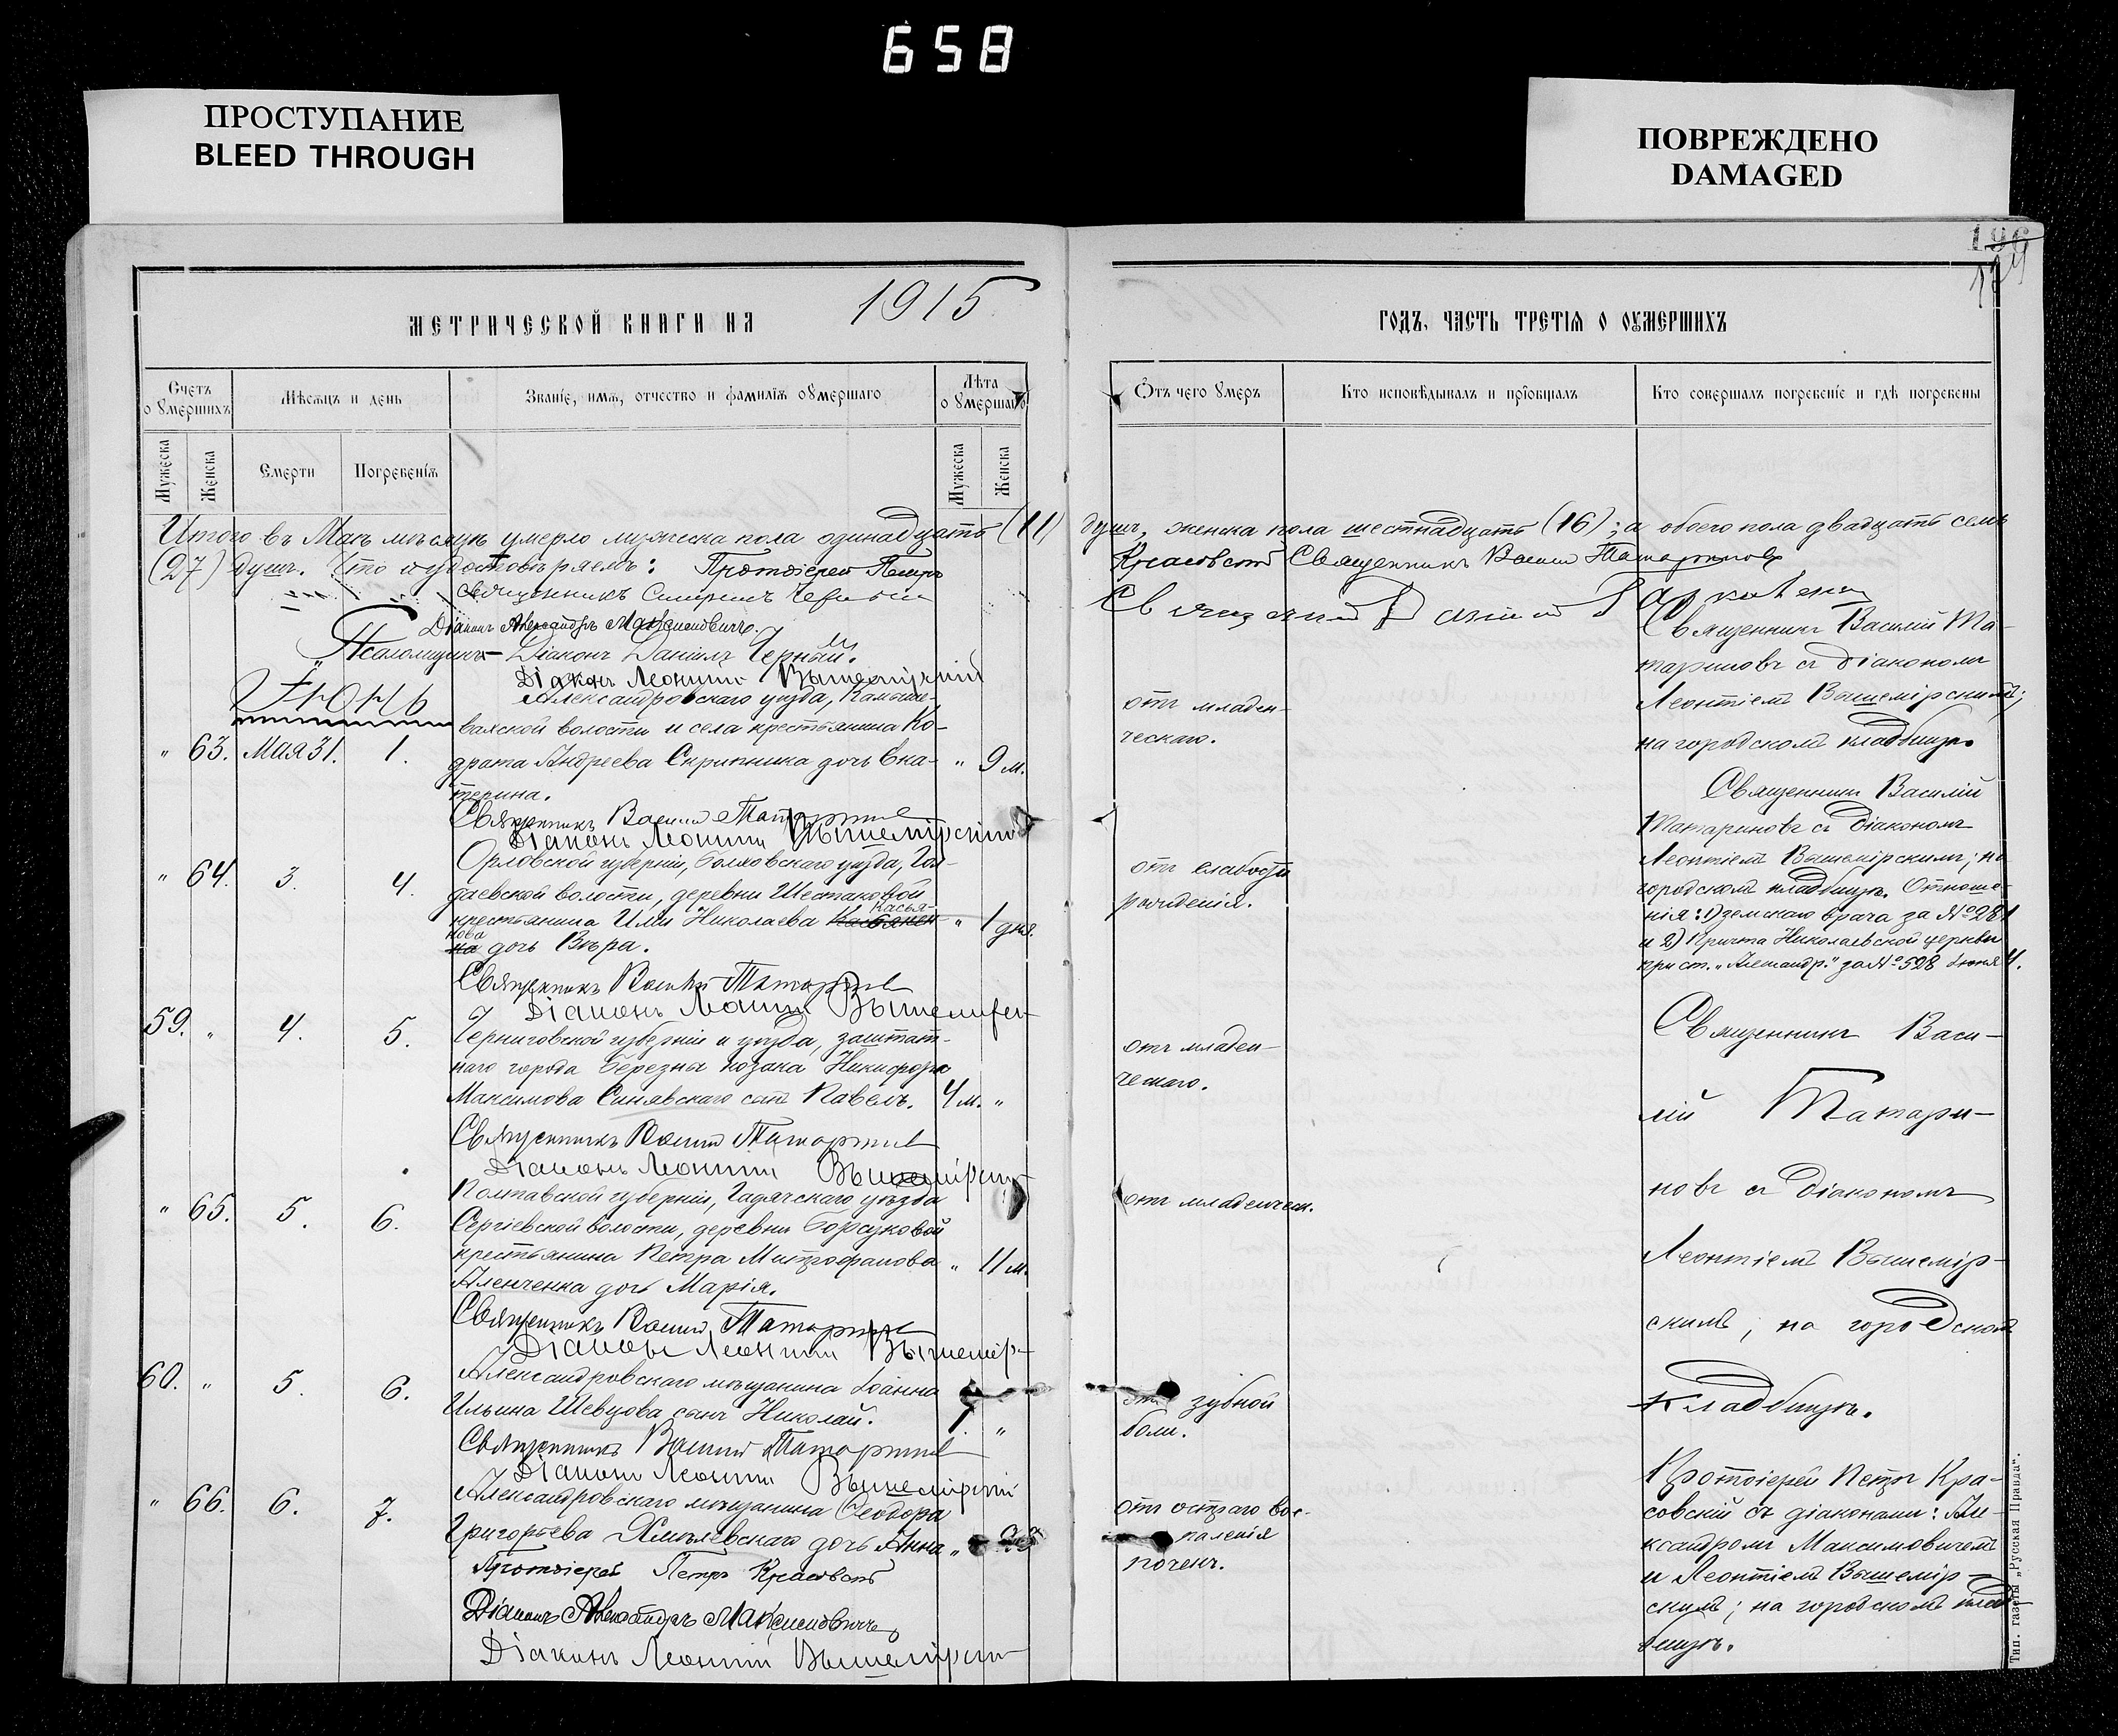 658
ПРОСТУПАНИЕ
BLEED THROUGH
ПОВРЕЖДЕНО
DAMAGED
МЕТРИЧЕСКОЙ КНИГИ НА 1915
Счетъ оумершихъ
Мѣсяцъ и день
Званіе, имя, отчество и фамилія оумершаго
Лѣта оумершаго
Мужеска
Женска
Смерти
Погребенія
Мужеска
Женска
Итого въ Маѣ мѣсяцѣ умерло мужеска пола одинадцать (11)
(27) душъ. Что и удостовѣряемъ: Протоіерей Петръ
Священникъ
Діаконъ Александръ Максимовичъ.
Псаломщикъ – Діаконъ Даніилъ Черный.
Діаконъ Леонтій Вышемірскій
Іюнь
Александровскаго уѣзда, Камыше-
вахской волости и села крестьянина Ко-
" 63. Мая 31. 1. драта Андреева Скрипника дочь Ека- " 9 м.
терина.
Священникъ Василій Татариновъ
Діаконъ Леонтій Вышемірскій
Орловской губерніи, Болховскаго уѣзда,
" 64. 3. 4. даевской волости, деревни Шестаковой
крестьянина Ильи Николаева Касья- " 1 дня.
нова дочь Вѣра.
Священникъ Василій Татариновъ
Діаконъ Леонтій Вышемірскій
59. " 4. 5. Черниговской губерніи и уѣзда, заштат-
наго города Березна козака Никифора
Максимова Синявскаго сынъ Павелъ. 4 м. "
Священникъ Василій Татариновъ
Діаконъ Леонтій Вышемірскій
Полтавской губерніи, Гадячскаго уѣзда
" 65. 5. 6. Сергіевской волости, деревни Борсуковой
крестьянина Петра Митрофанова " 11 м.
Аленченка дочь Марія.
Священникъ Василій Татариновъ
Діаконъ Леонтій Вышемір-
60. " 5. 6. Александровскаго мѣщанина Іоанна
Ильина Шевцова сынъ Николай. "
Священникъ Василій Татариновъ
Діаконъ Леонтій Вышемірскій
" 66. 6. 7. Александровскаго мѣщанина Ѳеодора
Григорьева Хмѣлевскаго дочь Анна "
Протоіерей Петръ Красовскій
Діаконъ Александръ Максимовичъ
Діаконъ Леонтій Вышемірскій
196
ГОДЪ, ЧАСТЬ ТРЕТІЯ О ОУМЕРШИХЪ
Отъ чего умеръ
Кто исповѣдывалъ и пріобщалъ
Кто совершалъ погребеніе и гдѣ погребены
душъ, женска пола шестнадцать (16); а обоего пола двадцать семь
Красовскій Священникъ Василій Татариновъ
Священникъ
Священникъ Василій Та-
тариновъ съ діакономъ
отъ младен- Леонтіемъ Вышемірскимъ;
ческаго. на городскомъ кладбищѣ.
Священникъ Василій
Татариновъ съ діакономъ
Леонтіемъ Вышемірскимъ; на
отъ слабости городскомъ кладбищѣ. Отноше-
рожденія. нія: 1) земскаго врача за № 281
и 2) причта Николаевской церкви
при ст. „Александр." за № 528 Іюня 4.
Священникъ Васи-
отъ младен-
ческаго.
лій Татари-
новъ съ діакономъ
отъ младенческ.
Леонтіемъ Вышемір-
скимъ; на городскомъ
отъ зубной кладбищѣ.
боли.
Протоіерей Петръ Кра-
отъ остраго вос- совскій съ діаконами: Але-
паленія ксандромъ Максимовичемъ
почекъ. и Леонтіемъ Вышемір-
скимъ; на городскомъ клад-
бищѣ.
Тип. газеты „Русская Правда".